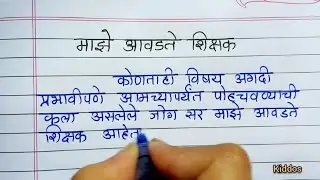 माझे आवडते शिक्षक
कोणताही विषय अगदी
प्रभावीपणे आमच्यापर्यंत पोहचवण्याची
कला असलेले जोग सर माझे आवडते
शिक्षक आहेत
Kiddos